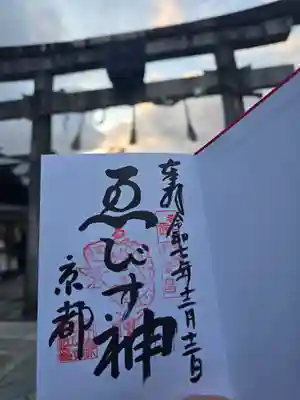 奉拝
令和七年十二月十二日
ゑびす神
京都